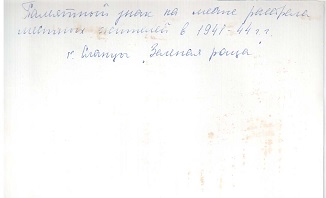 Памятный знак на месте расстрела
местных жителей в 1941-44 г.г.
г. Сланцы "Зеленая роща"